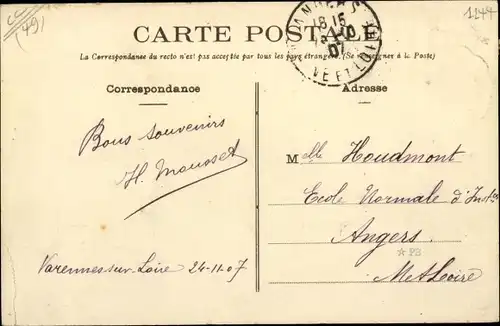 (49)
1244
CARTE POSTALE
ANGERS
18 15
07
NE ET LOIRE
La Correspondance du recto n'est pas acceptée par tous les pays étrangers. (Se renseigner à la Poste)
Correspondance
Adresse
Bons souvenirs
H. Mousset
Varennes-sur-Loire 24-11-07
Melle Houdmont
Ecole Normale d'Inst
Angers
P3
M et Loire